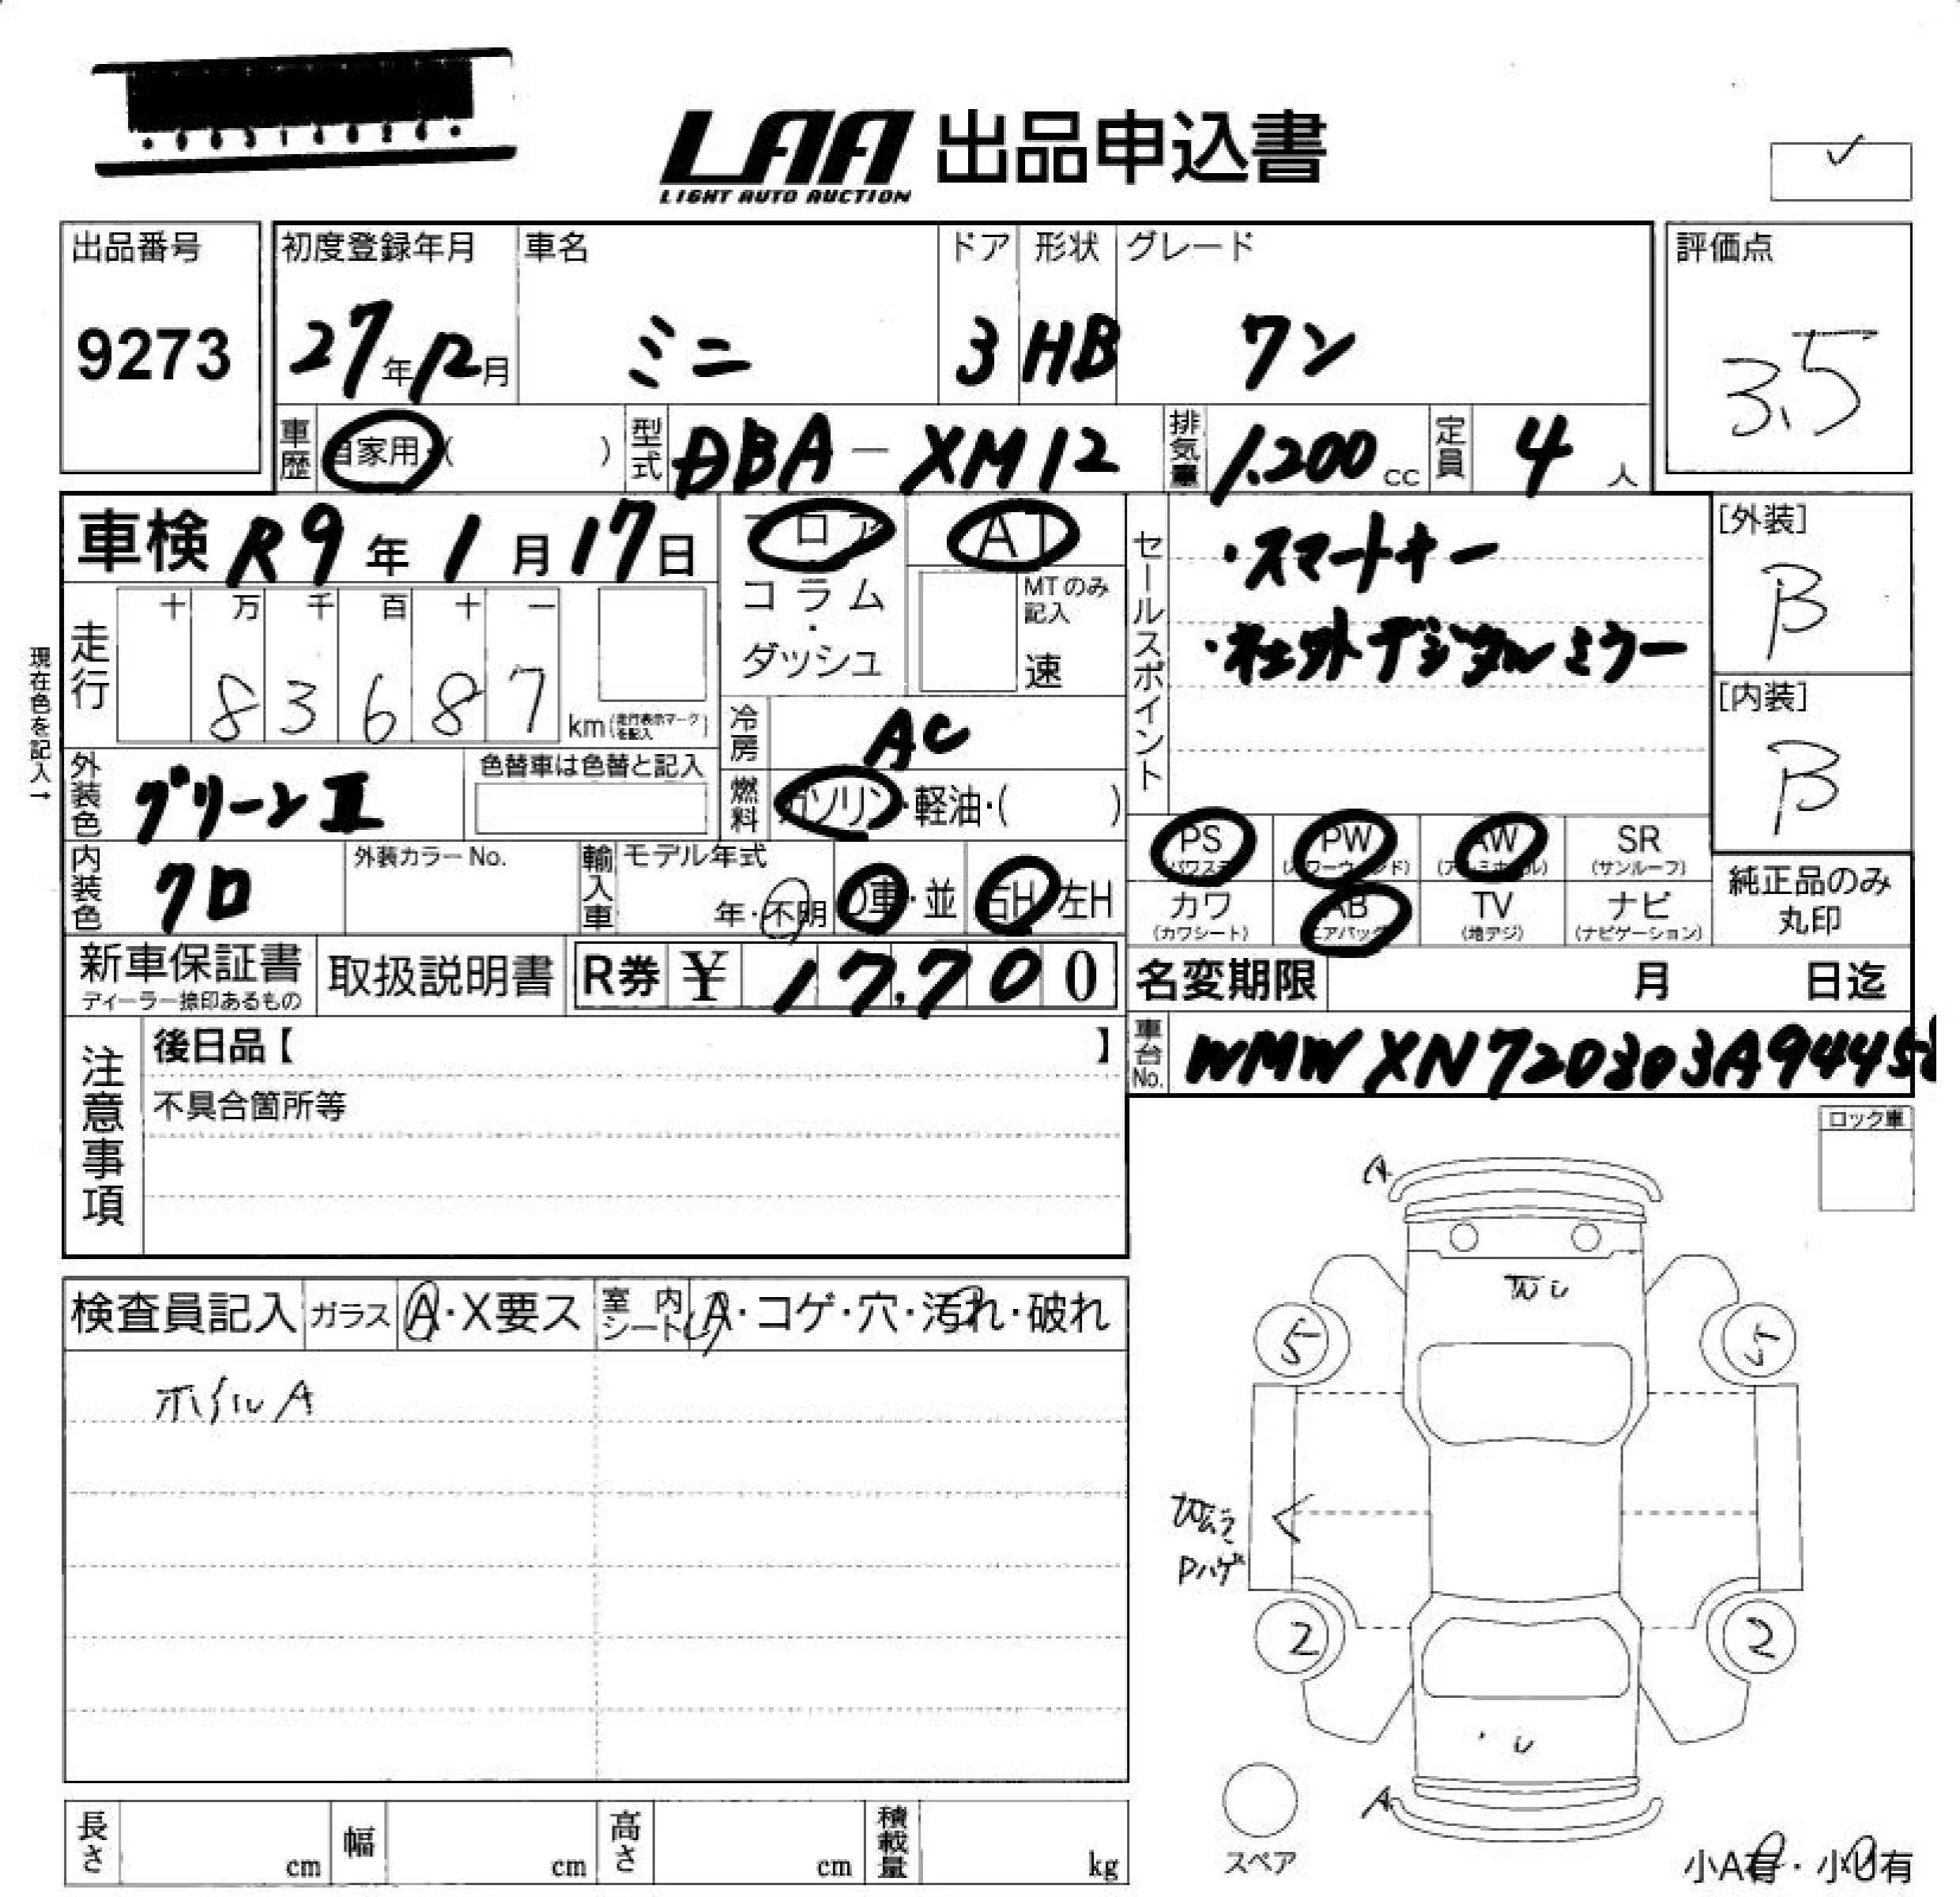 LAA 出品申込書
LIGHT AUTO AUCTION
出品番号
9273
初度登録年月
27年12月
車名
ミニ
ドア
3
形状
HB
グレード
ワン
評価点
3.5
車歴 自家用・( )
型式 DBA-XM12
排気量 1,200cc
定員 4人
車検 R9年1月17日
フロア
コラム・ダッシュ
AT
MTのみ記入
速
セールスポイント
・スマートキー
・社外デジタルミラー
[外装]
B
[内装]
B
現在色を記入→
走行
十 万 千 百 十 一
8 3 6 8 7 km(走行表示マークを記入)
冷房 AC
燃料 ガソリン・軽油・( )
外装色 グリーンII
色替車は色替と記入
内装色 クロ
外装カラーNo.
輸入車 モデル年式
年・不明
D車・並
右H 左H
PS (パワステ)
PW (パワーウィンド)
AW (アルミホイル)
SR (サンルーフ)
カワ (カワシート)
AB (エアバッグ)
TV (地デジ)
ナビ (ナビゲーション)
純正品のみ丸印
新車保証書
ディーラー捺印あるもの
取扱説明書
R券 ¥ 17,700
名変期限 月 日迄
車台No.
注意事項
後日品【 】
不具合箇所等
ロック車
検査員記入
ガラス A・X要ス
室内シート A・コゲ・穴・汚れ・破れ
ホイルA
A
5 5
Pハゲ
2 2
A
スペア
長さ cm
幅 cm
高さ cm
積載量 kg
小A有・小U有